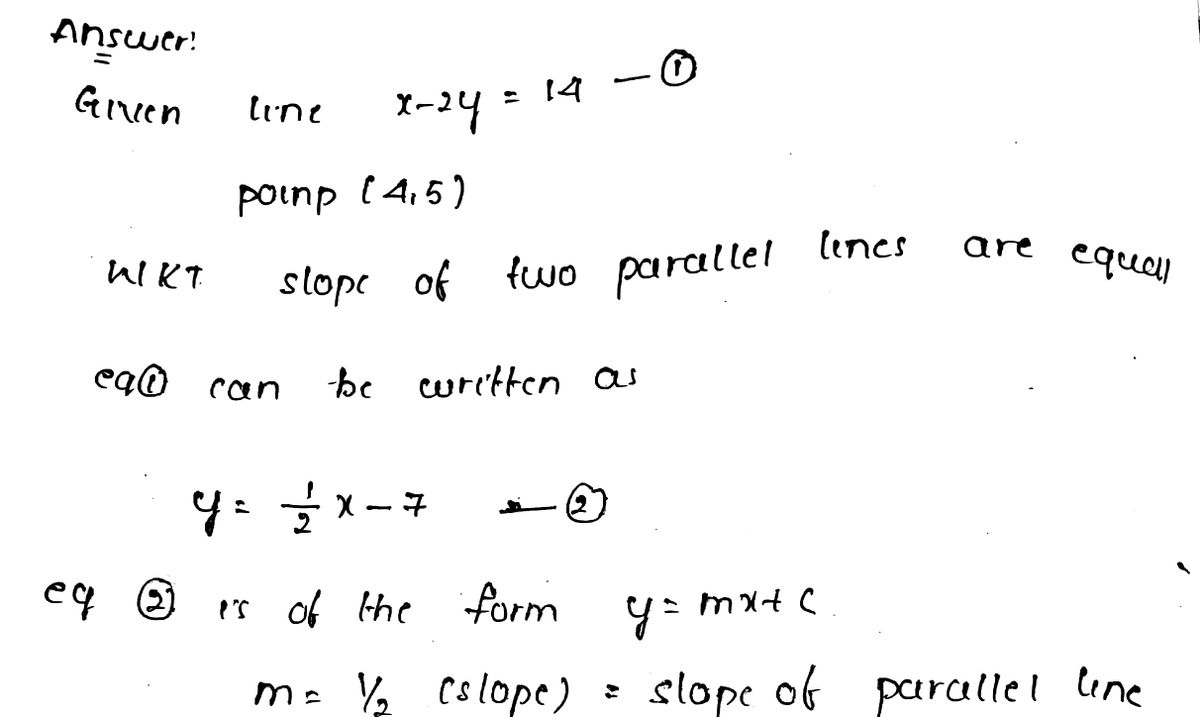 Answer:
Given line x-2y = 14 — ①
poinp (4,5)
WKT slope of two parallel lines are equal
eq① can be written as
y = 1/2 x - 7 — ②
eq ② is of the form y = mx + c
m = 1/2 (slope) = slope of parallel line